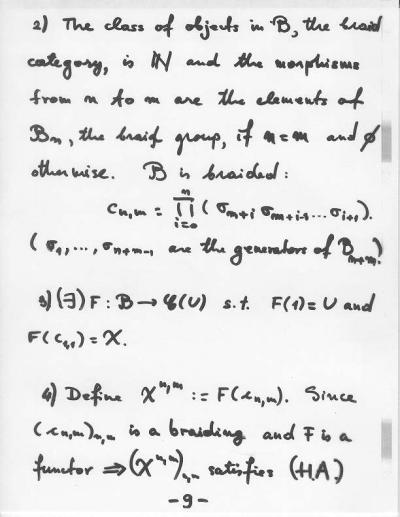 2) The class of objects in B, the braid
category, is ℕ and the morphisms
from n to m are the elements of
Bn, the braid group, if n=m and ∅
otherwise. B is braided:
c_{n,m} = ∏_{i=0}^{n} (σ_{m+i} σ_{m+i-1} ... σ_{i+1}).
(σ_1, ..., σ_{n+m-1} are the generators of B_{n+m}.)
3) (∃) F : B → 𝒞(U) s.t. F(1) = U and
F(c_{1,1}) = X.
4) Define X^{n,m} := F(c_{n,m}). Since
(c_{n,m})_{n,m} is a braiding and F is a
functor ⇒ (X^{n,m})_{n,m} satisfies (HA)
-9-